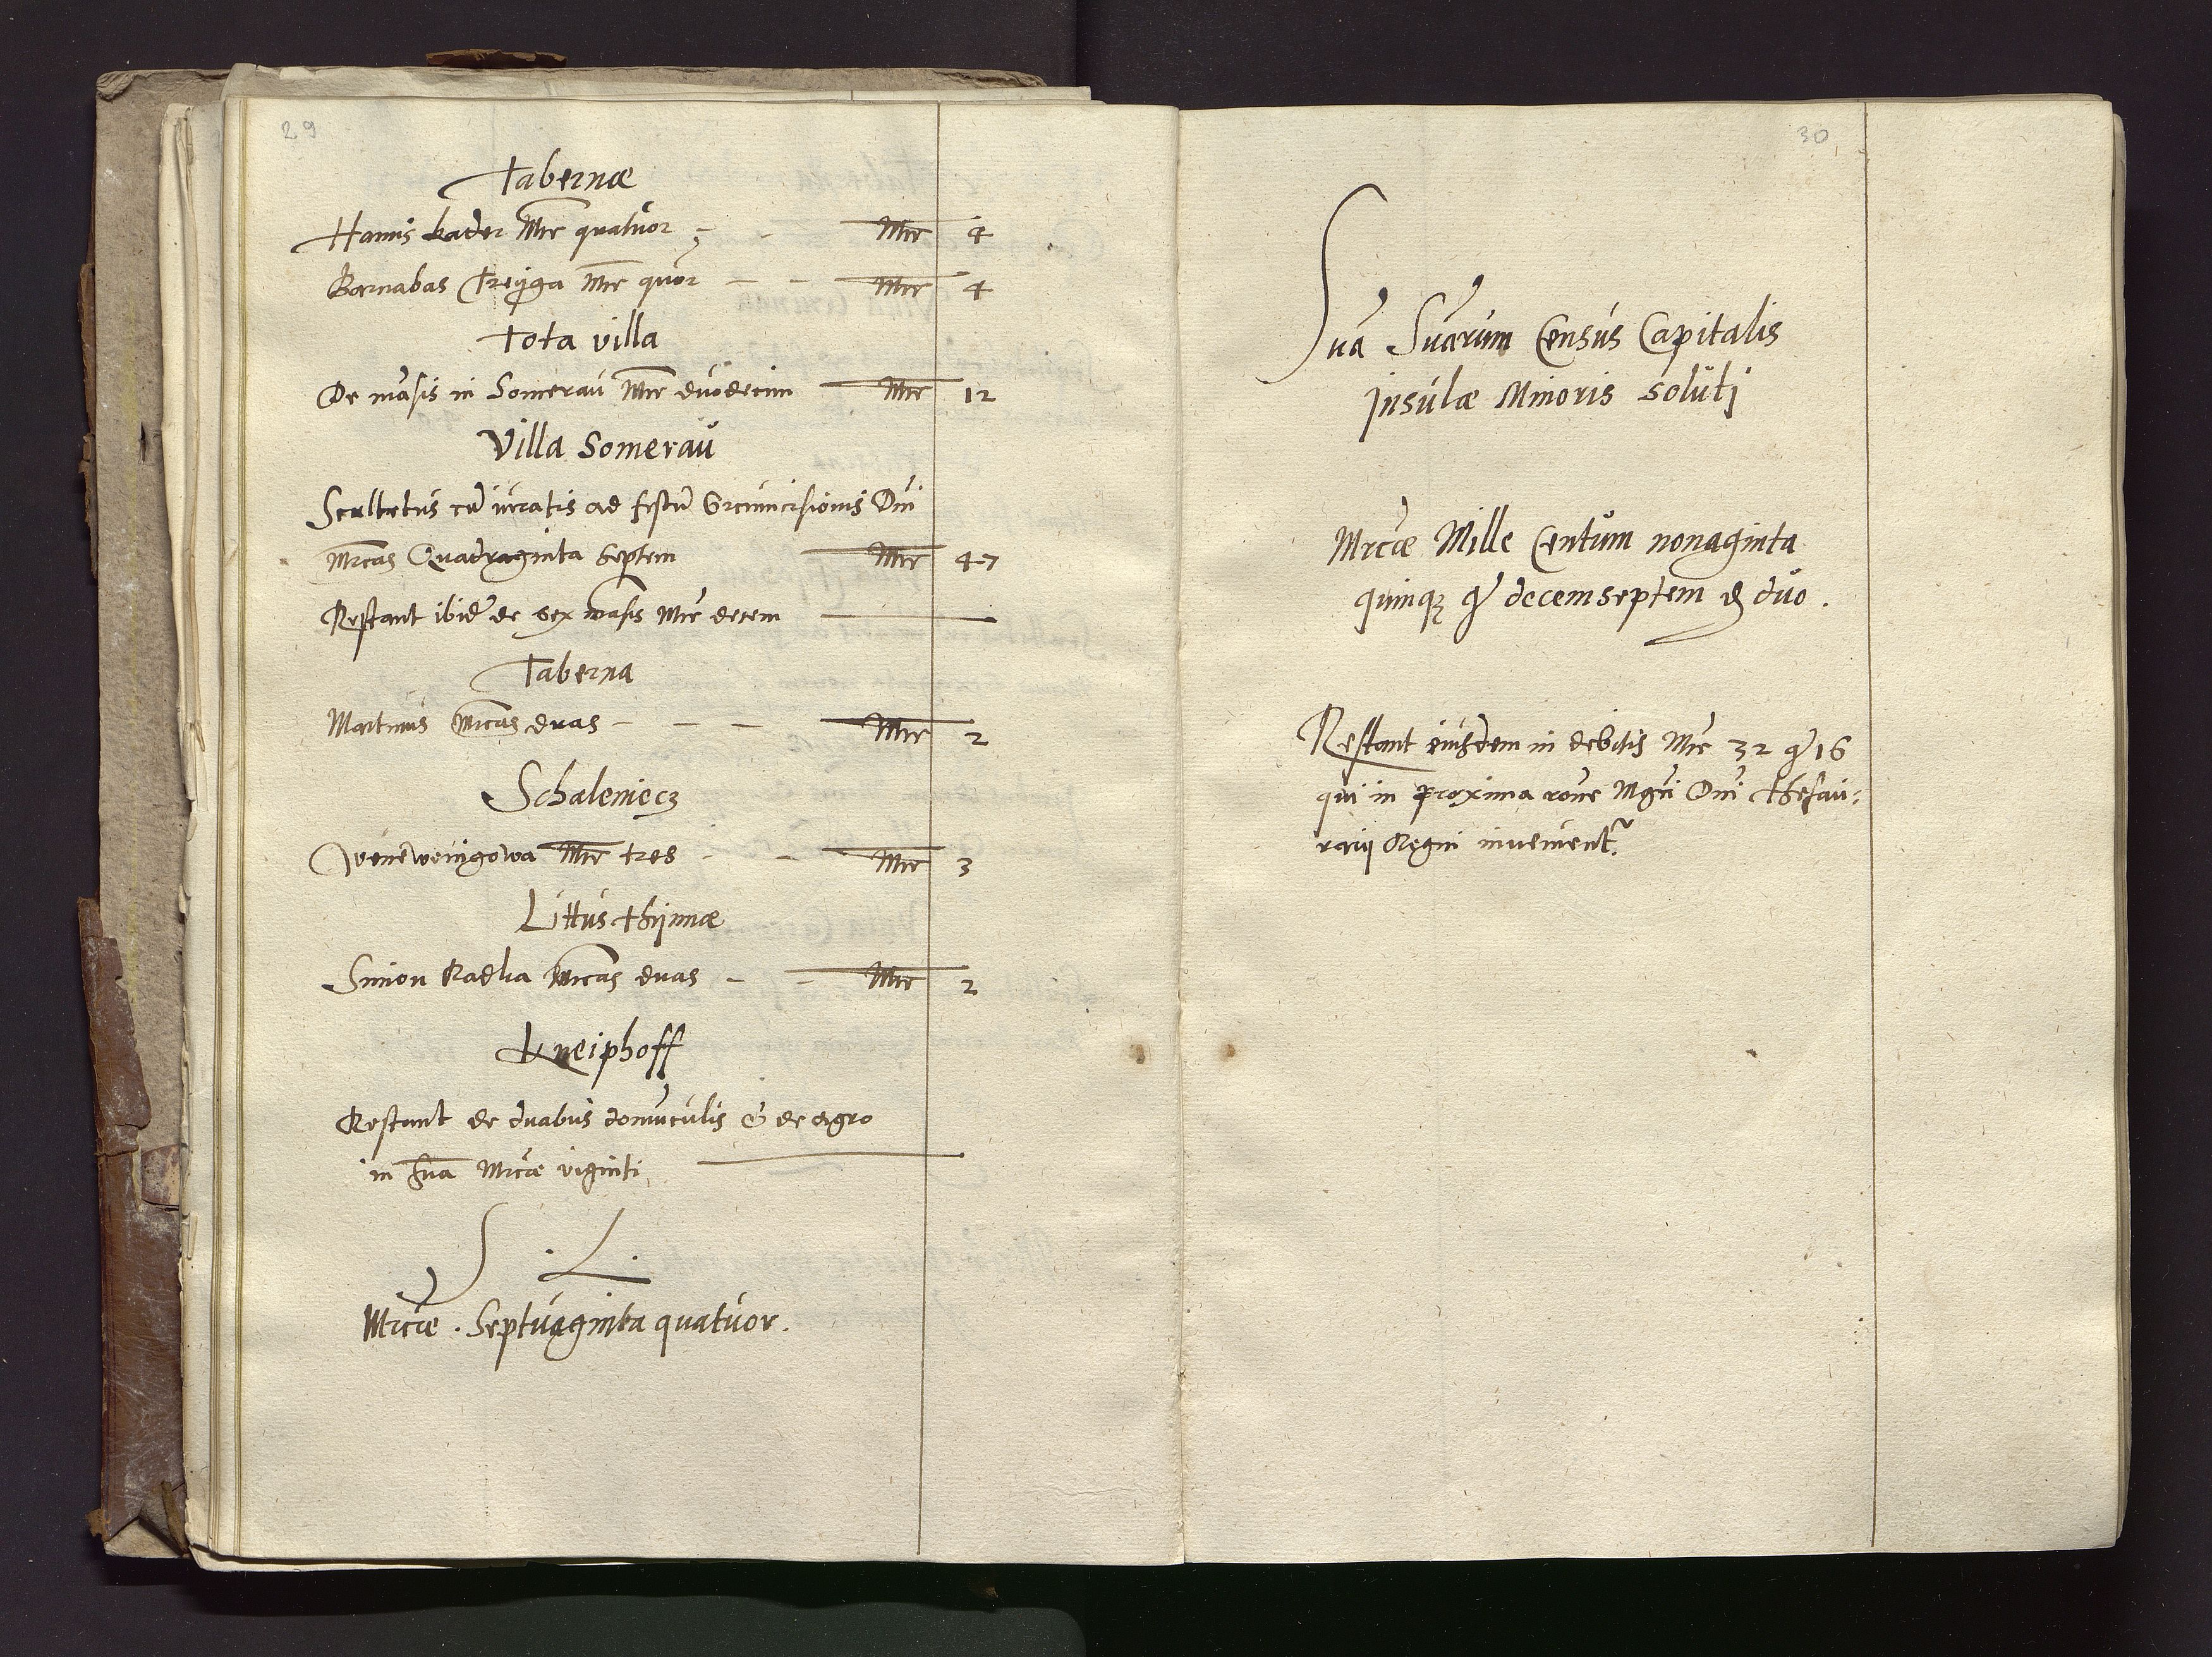 29
Tabernæ
Hanns bader Mrc quatuor Mrc 4
Barnabas Mrc quor Mrc 4
Tota villa
De masis in Somerau Mrc duodecim Mrc 12
Villa Somerau
Scultetus cu iuratis ad festu Circumcisionis Dni
Mrcas Quadraginta Septem Mrc 47
Restant ibid de sex masis Mrc decem
Taberna
Martinus Mrcas duas Mrc 2
Schaleniecz
Mrc tres Mrc 3
Littus thijnnæ
Simon Kadlia Mrcas duas Mrc 2
Kneiphoff
Restant de duabus domunculis & de agro
in sua Mrcæ viginti
S. L.
Mrcæ. Septuaginta quatuor.
30
Sua Suarum Census Capitalis
Insulæ Minoris soluti
Mrcæ Mille Centum nonaginta
quinqz gr decemseptem d duo.
Restant eiusdem in debitis Mrc 32 gr 16
qui in proxima rone Mgci Dni thesau:
rarij Regni invenient